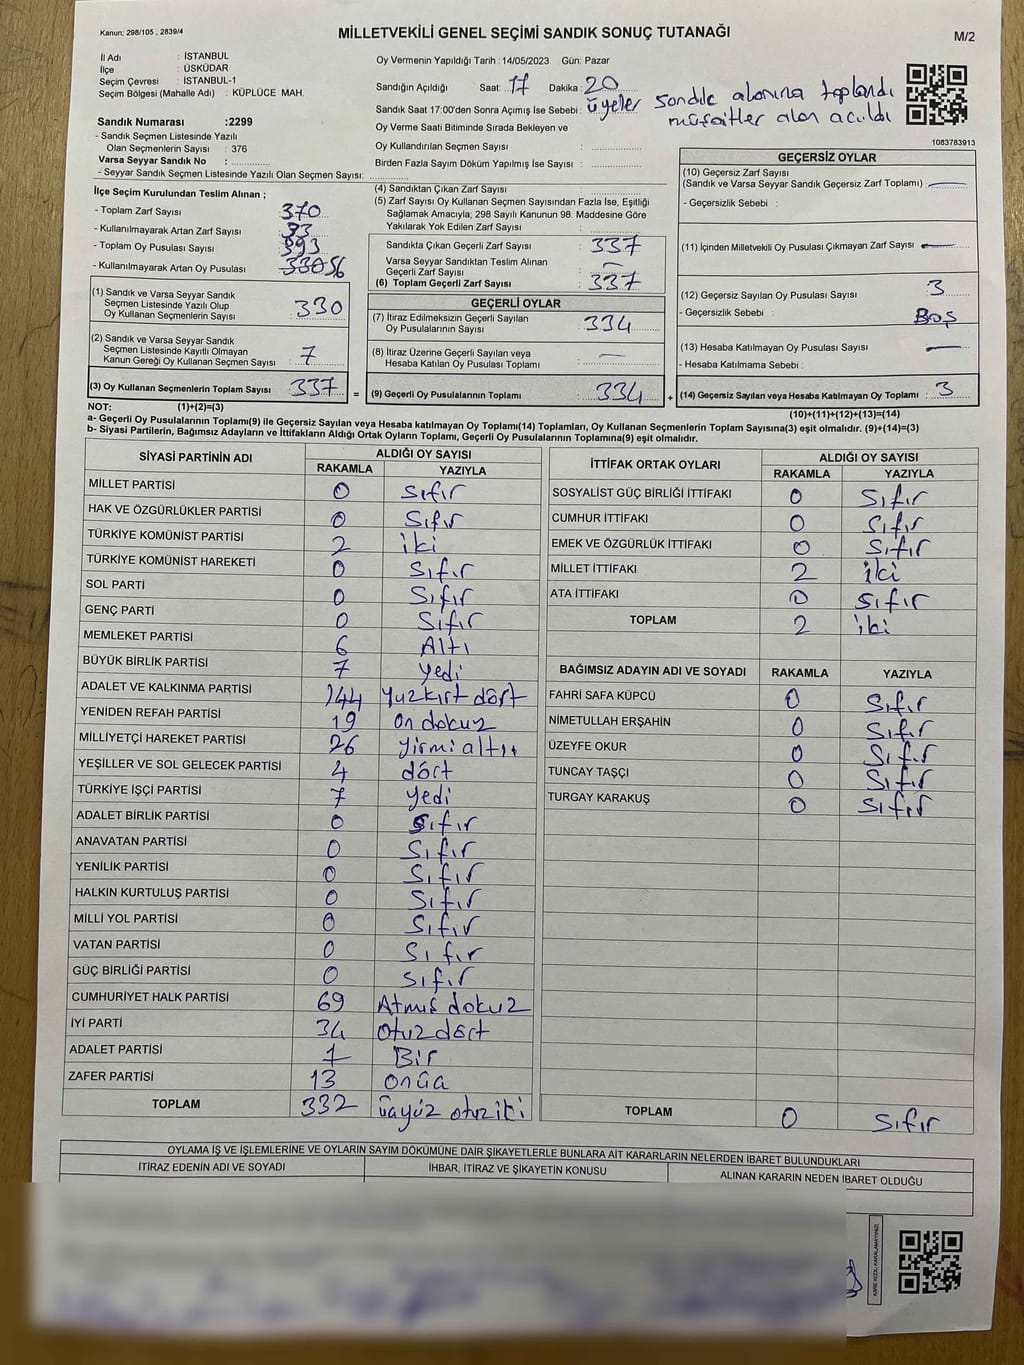 Kanun; 298/105 , 2839/4
MİLLETVEKİLİ GENEL SEÇİMİ SANDIK SONUÇ TUTANAĞI
M/2
İl Adı : İSTANBUL
İlçe : ÜSKÜDAR
Seçim Çevresi : İSTANBUL-1
Seçim Bölgesi (Mahalle Adı) : KÜPLÜCE MAH.
Oy Vermenin Yapıldığı Tarih : 14/05/2023 Gün: Pazar
Sandığın Açıldığı Saat: 17 Dakika: 20
Sandık Saat 17:00'den Sonra Açımış İse Sebebi : üyeler sandık alanına toplandı
müşaitler alan açıldı
Oy Verme Saati Bitiminde Sırada Bekleyen ve
Oy Kullandırılan Seçmen Sayısı :
Birden Fazla Sayım Döküm Yapılmış İse Sayısı :
1083783913
Sandık Numarası :2299
- Sandık Seçmen Listesinde Yazılı
Olan Seçmenlerin Sayısı : 376
Varsa Seyyar Sandık No :
- Seyyar Sandık Seçmen Listesinde Yazılı Olan Seçmen Sayısı:
İlçe Seçim Kurulundan Teslim Alınan ;
- Toplam Zarf Sayısı 370
- Kullanılmayarak Artan Zarf Sayısı : 33
- Toplam Oy Pusulası Sayısı : 393
- Kullanılmayarak Artan Oy Pusulası 56
(1) Sandık ve Varsa Seyyar Sandık
Seçmen Listesinde Yazılı Olup
Oy Kullanan Seçmenlerin Sayısı : 330
(2) Sandık ve Varsa Seyyar Sandık
Seçmen Listesinde Kayıtlı Olmayan
Kanun Gereği Oy Kullanan Seçmen Sayısı : 7
(3) Oy Kullanan Seçmenlerin Toplam Sayısı : 337 =
(4) Sandıktan Çıkan Zarf Sayısı :
(5) Zarf Sayısı Oy Kullanan Seçmen Sayısından Fazla İse, Eşitliği
Sağlamak Amacıyla; 298 Sayılı Kanunun 98. Maddesine Göre
Yakılarak Yok Edilen Zarf Sayısı :
Sandıkta Çıkan Geçerli Zarf Sayısı : 337
Varsa Seyyar Sandıktan Teslim Alınan
Geçerli Zarf Sayısı : —
(6) Toplam Geçerli Zarf Sayısı : 337
GEÇERLİ OYLAR
(7) İtiraz Edilmeksizin Geçerli Sayılan
Oy Pusulalarının Sayısı : 334
(8) İtiraz Üzerine Geçerli Sayılan veya
Hesaba Katılan Oy Pusulası Toplamı : —
(9) Geçerli Oy Pusulalarının Toplamı : 334 +
GEÇERSİZ OYLAR
(10) Geçersiz Zarf Sayısı
(Sandık ve Varsa Seyyar Sandık Geçersiz Zarf Toplamı) : —
- Geçersizlik Sebebi :
(11) İçinden Milletvekili Oy Pusulası Çıkmayan Zarf Sayısı : —
(12) Geçersiz Sayılan Oy Pusulası Sayısı : 3
- Geçersizlik Sebebi : BOŞ
(13) Hesaba Katılmayan Oy Pusulası Sayısı : —
- Hesaba Katılmama Sebebi :
(14) Geçersiz Sayılan veya Hesaba Katılmayan Oy Toplamı : 3
NOT: (1)+(2)=(3)
(10)+(11)+(12)+(13)=(14)
a- Geçerli Oy Pusulalarının Toplamı(9) ile Geçersiz Sayılan veya Hesaba katılmayan Oy Toplamı(14) Toplamları, Oy Kullanan Seçmenlerin Toplam Sayısına(3) eşit olmalıdır. (9)+(14)=(3)
b- Siyasi Partilerin, Bağımsız Adayların ve İttifakların Aldığı Ortak Oyların Toplamı, Geçerli Oy Pusulalarının Toplamına(9) eşit olmalıdır.
SİYASİ PARTİNİN ADI ALDIĞI OY SAYISI
RAKAMLA YAZIYLA
MİLLET PARTİSİ 0 sıfır
HAK VE ÖZGÜRLÜKLER PARTİSİ 0 Sıfır
TÜRKİYE KOMÜNİST PARTİSİ 2 iki
TÜRKİYE KOMÜNİST HAREKETİ 0 Sıfır
SOL PARTİ 0 Sıfır
GENÇ PARTİ 0 Sıfır
MEMLEKET PARTİSİ 6 Altı
BÜYÜK BİRLİK PARTİSİ 7 yedi
ADALET VE KALKINMA PARTİSİ 144 yuzkırt dört
YENİDEN REFAH PARTİSİ 19 on dokuz
MİLLİYETÇİ HAREKET PARTİSİ 26 yirmi altı
YEŞİLLER VE SOL GELECEK PARTİSİ 4 dört
TÜRKİYE İŞÇİ PARTİSİ 7 yedi
ADALET BİRLİK PARTİSİ 0 sıfır
ANAVATAN PARTİSİ 0 Sıfır
YENİLİK PARTİSİ 0 Sıfır
HALKIN KURTULUŞ PARTİSİ 0 Sıfır
MİLLİ YOL PARTİSİ 0 Sıfır
VATAN PARTİSİ 0 Sıfır
GÜÇ BİRLİĞİ PARTİSİ 0 sıfır
CUMHURİYET HALK PARTİSİ 69 Atmış dokuz
İYİ PARTİ 34 otuz dört
ADALET PARTİSİ 1 Bir
ZAFER PARTİSİ 13 onüç
TOPLAM 332 üçyüz otuz iki
İTTİFAK ORTAK OYLARI ALDIĞI OY SAYISI
RAKAMLA YAZIYLA
SOSYALİST GÜÇ BİRLİĞİ İTTİFAKI 0 Sıfır
CUMHUR İTTİFAKI 0 Sıfır
EMEK VE ÖZGÜRLÜK İTTİFAKI 0 Sıfır
MİLLET İTTİFAKI 2 iki
ATA İTTİFAKI 0 sıfır
TOPLAM 2 iki
BAĞIMSIZ ADAYIN ADI VE SOYADI RAKAMLA YAZIYLA
FAHRİ SAFA KÜPCÜ 0 Sıfır
NİMETULLAH ERŞAHİN 0 Sıfır
ÜZEYFE OKUR 0 Sıfır
TUNCAY TAŞÇI 0 Sıfır
TURGAY KARAKUŞ 0 Sıfır
TOPLAM 0 Sıfır
OYLAMA İŞ VE İŞLEMLERİNE VE OYLARIN SAYIM DÖKÜMÜNE DAİR ŞİKAYETLERLE BUNLARA AİT KARARLARIN NELERDEN İBARET BULUNDUKLARI
İTİRAZ EDENİN ADI VE SOYADI İHBAR, İTİRAZ VE ŞİKAYETİN KONUSU ALINAN KARARIN NEDEN İBARET OLDUĞU
KARE KODU KARALAMAYINIZ!